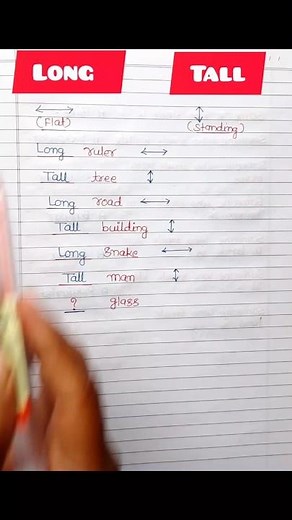 LONG TALL
(Flat) (Standing)
Long ruler
Tall tree
Long road
Tall building
Long Snake
Tall man
? glass